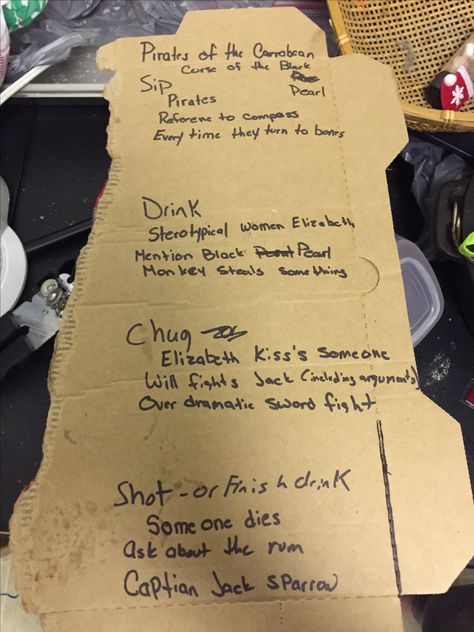 Pirates of the Carrabean
Curse of the Black
Pearl
Sip
Pirates
Reference to compass
Every time they turn to bones
Drink
Sterotypical women Elizabeth
Mention Black Pearl
Monkey steals something
Chug
Elizabeth Kiss's someone
Will fights Jack (including arguments)
Over dramatic sword fight
Shot - or Finish drink
Someone dies
ask about the rum
Captian Jack Sparrow